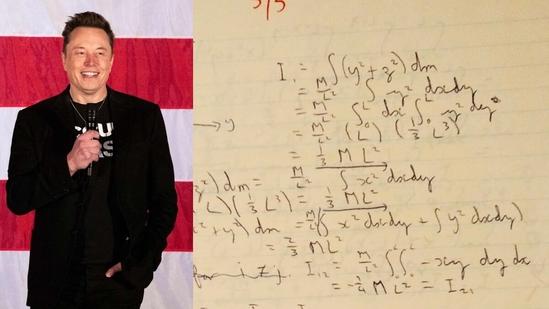 5/5
I₁ = ∫(y² + z²) dm
= M/L² ∫ y² dxdy
= M/L² ∫₀ᴸ dx ∫₀ᴸ y² dy
= M/L² (L) (1/3 L³)
= 1/3 ML²
→ y
z²) dm = M/L² ∫ x² dxdy
L) (1/3 L³) = 1/3 ML²
+ y²) dm = M/L² (∫ x² dxdy + ∫ y² dxdy)
= 2/3 ML²
I₁₂ = M/L² ∫₀ᴸ ∫₀ᴸ -xy dy dx
= -1/4 ML² = I₂₁